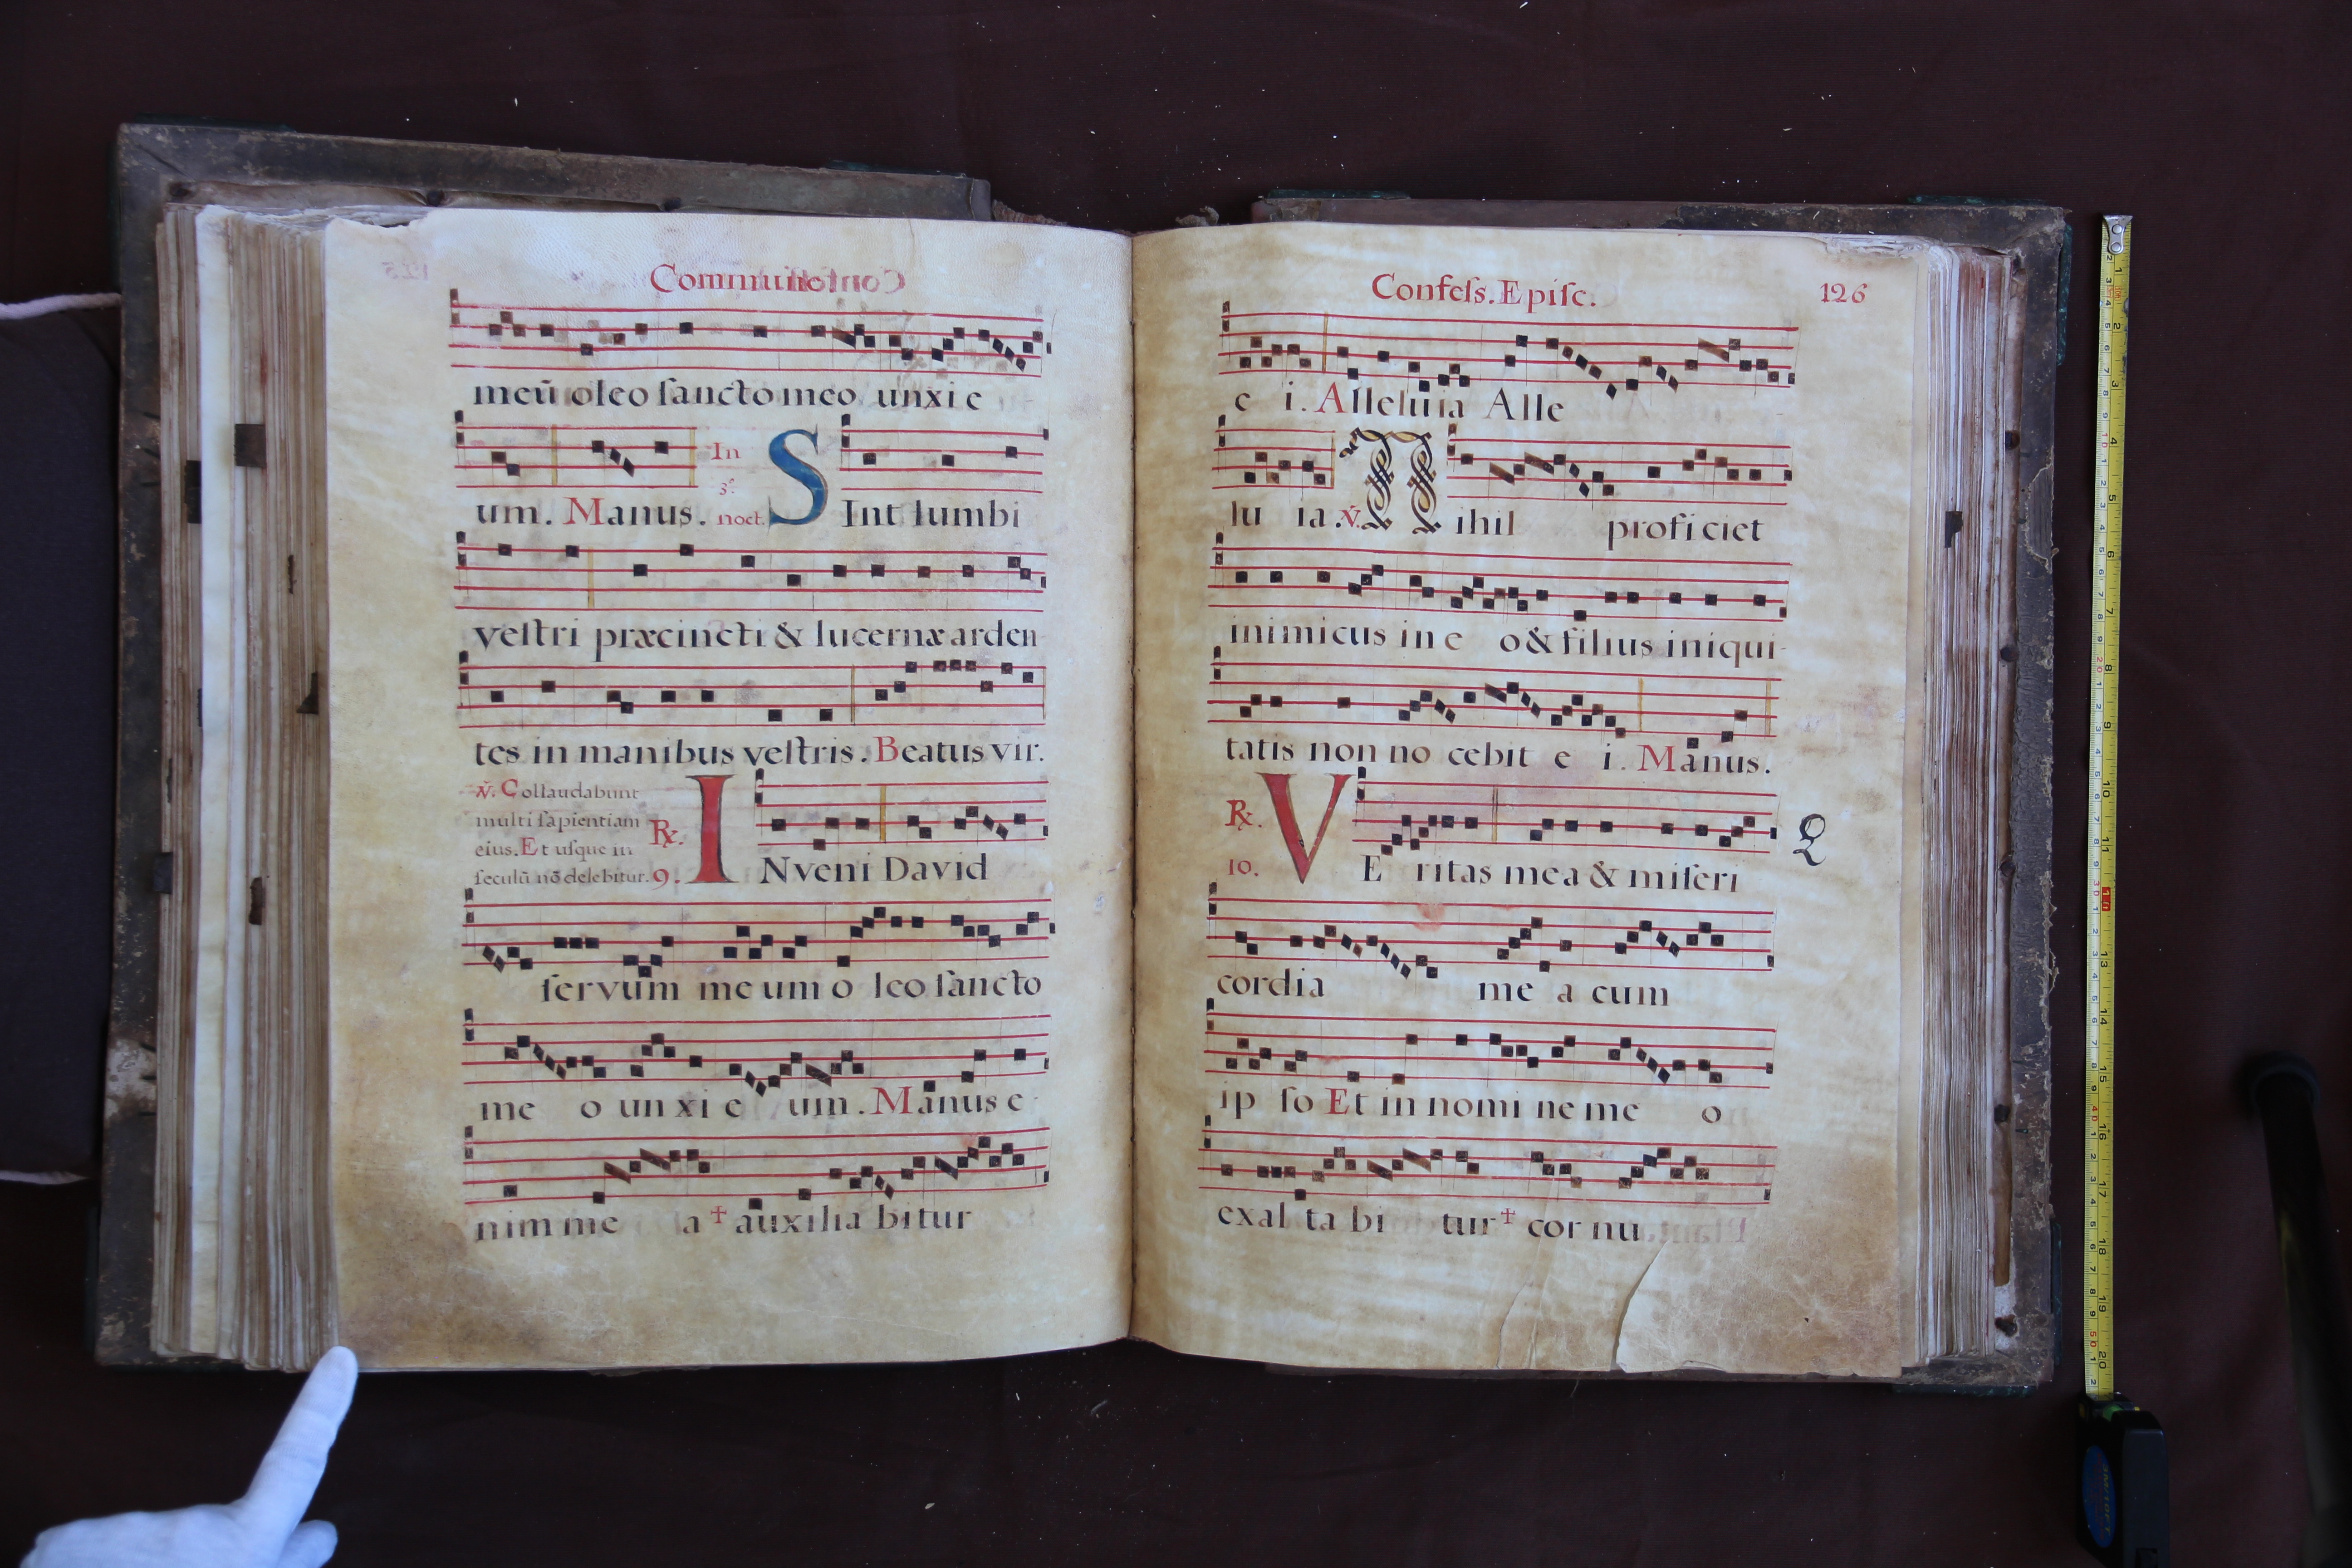 Commune
meū oleo sancto meo unxi e
um. Manus. In 3º. noct. SInt lumbi
vestri præcincti & lucernæ arden
tes in manibus vestris. Beatus vir.
℣. Collaudabunt
multi sapientiam
eius. Et usque in
seculū nō delebitur. ℟. 9. INveni David
servum me um o leo sancto
me o un xi e um. Manus e
nim me a † auxilia bitur
Confess. Episc. 126
e i. Alleluia Alle
lu ia. ℣. Nihil proficiet
inimicus in e o & filius iniqui-
tatis non no cebit e i. Manus.
℟. 10. VE ritas mea & miseri
cordia me a cum
ip so Et in nomi ne me o
exal ta bi tur † cor nu